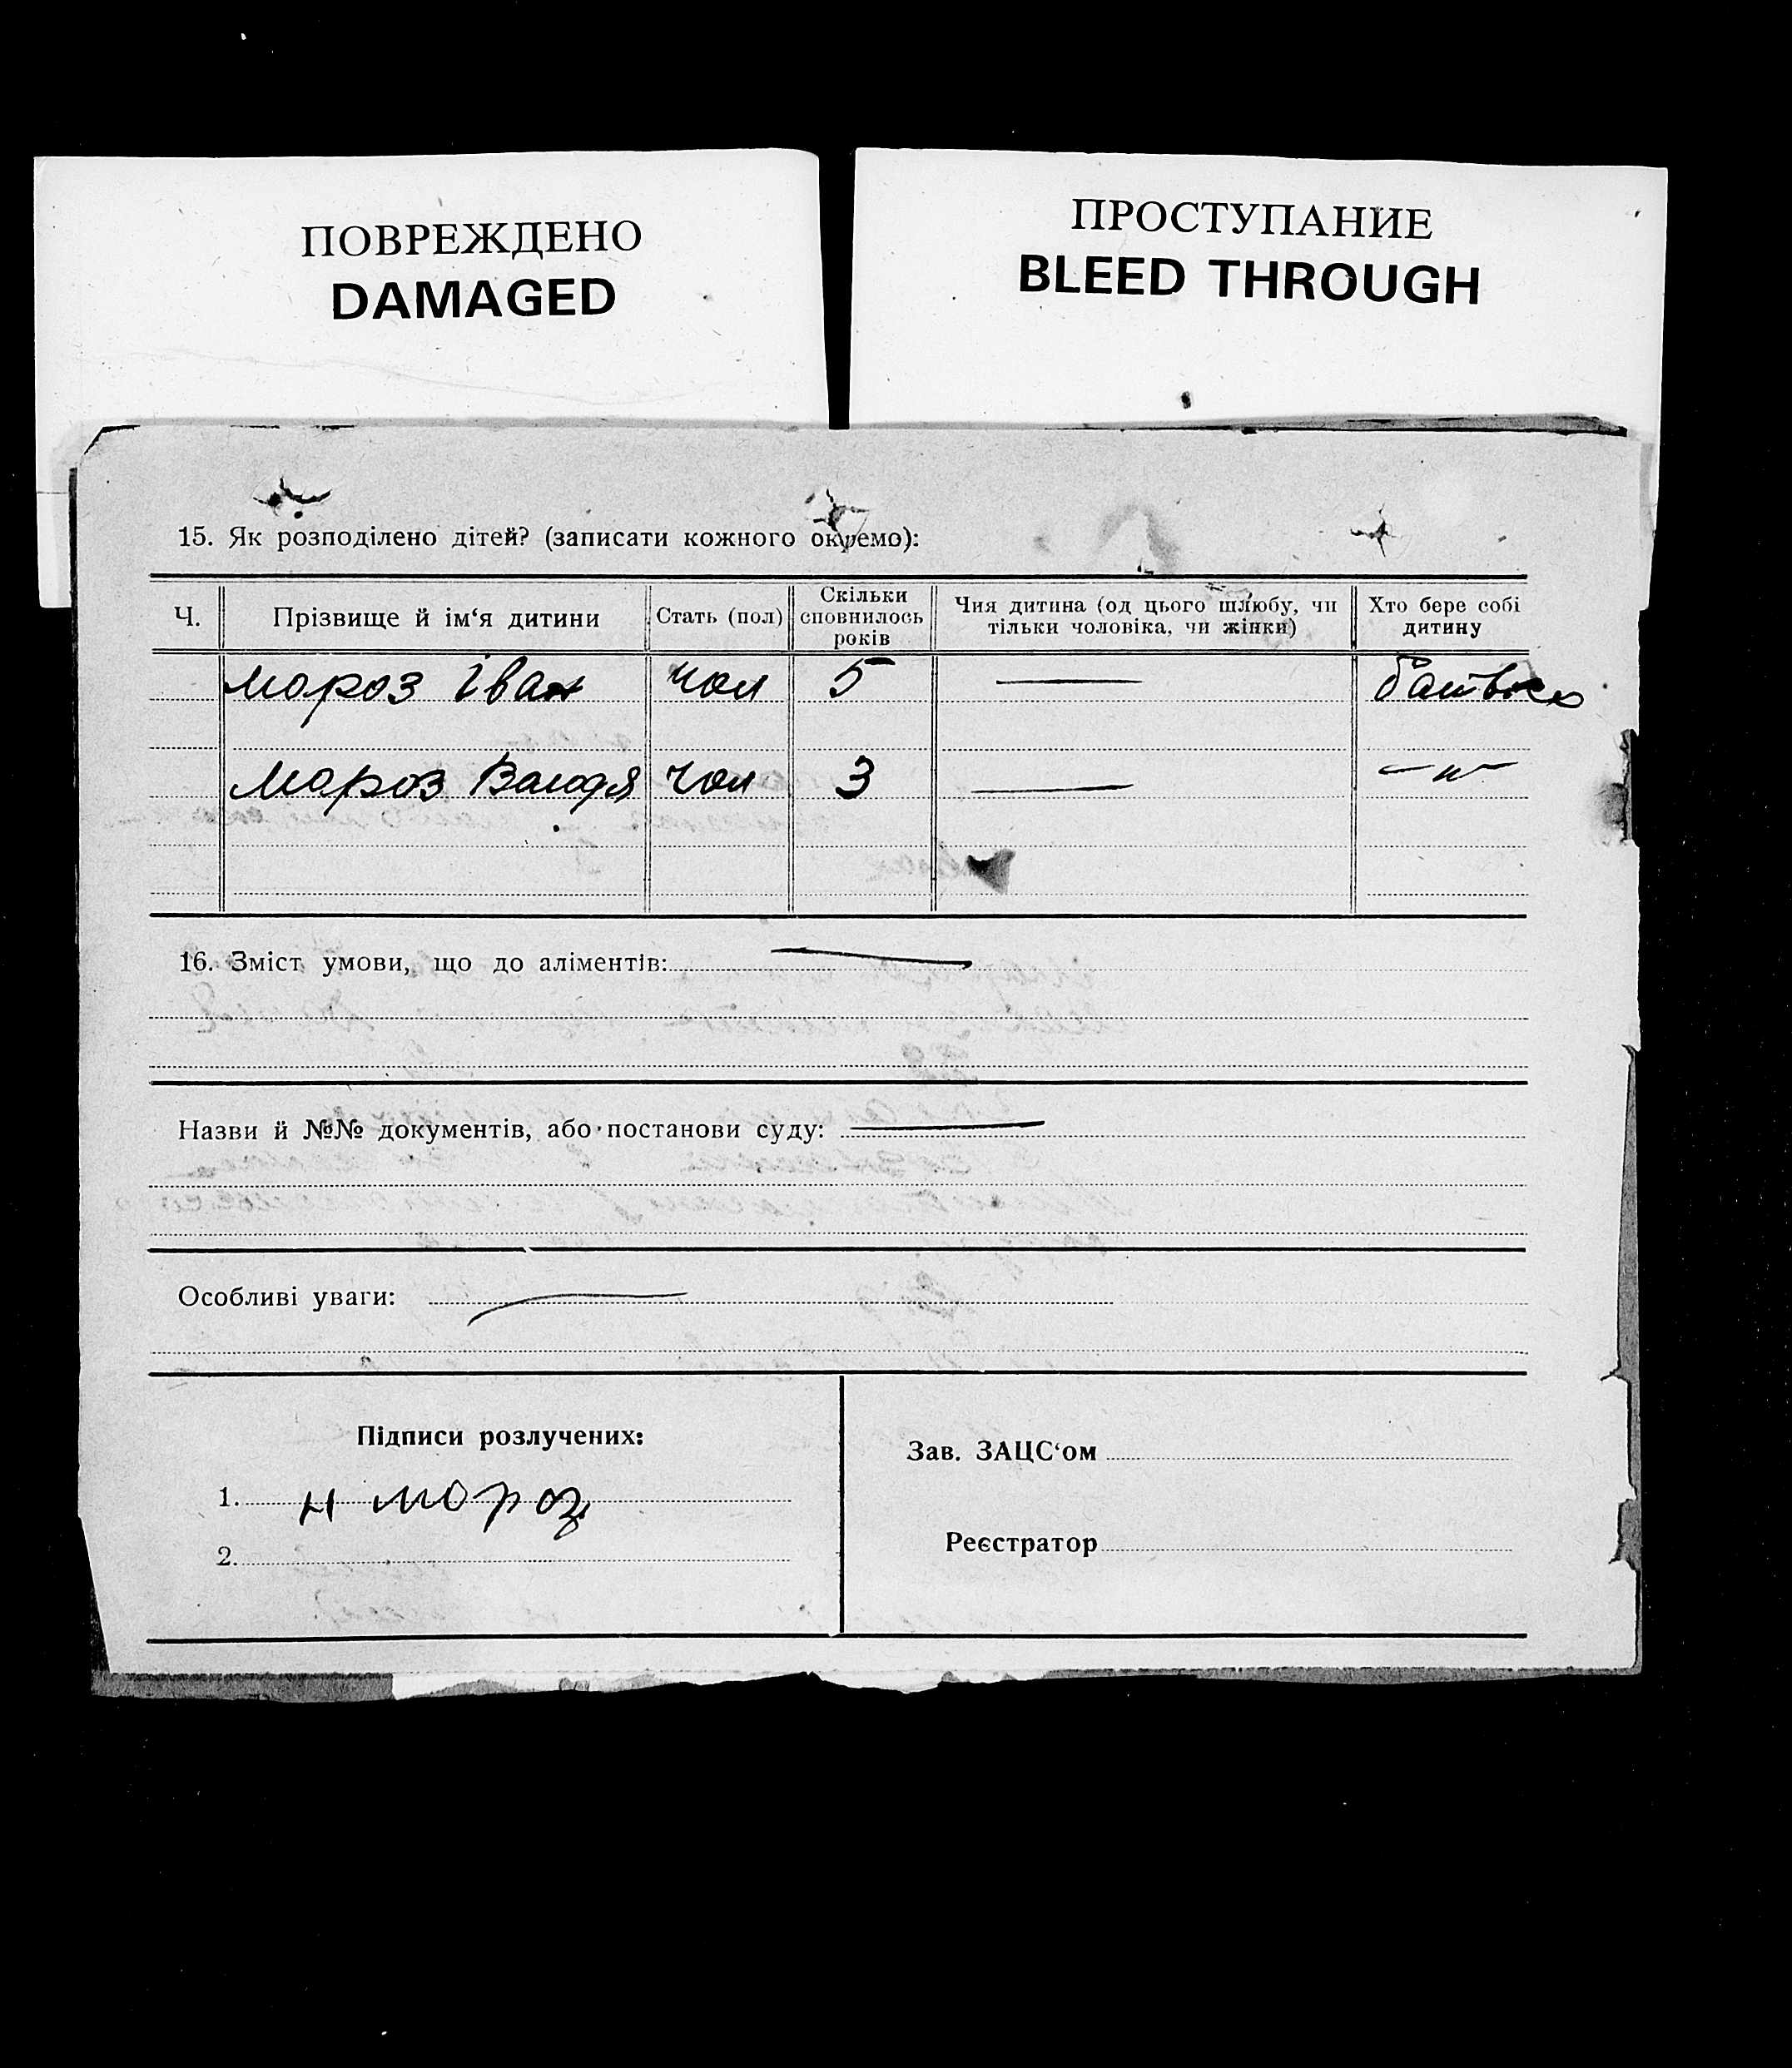 ПОВРЕЖДЕНО
DAMAGED
ПРОСТУПАНИЕ
BLEED THROUGH
15. Як розподілено дітей? (записати кожного окремо):
Ч. Прізвище й ім‘я дитини Стать (пол) Скільки сповнилось років Чия дитина (од цього шлюбу, чи тільки чоловіка, чи жінки) Хто бере собі дитину
Мороз Іван чол 5 —
Мороз Валодя чол 3 — —„—
16. Зміст умови, що до аліментів: —
Назви й №№ документів, або постанови суду: —
Особливі уваги: —
Підписи розлучених:
1. Н Мороз
2.
Зав. ЗАЦС‘ом
Реєстратор